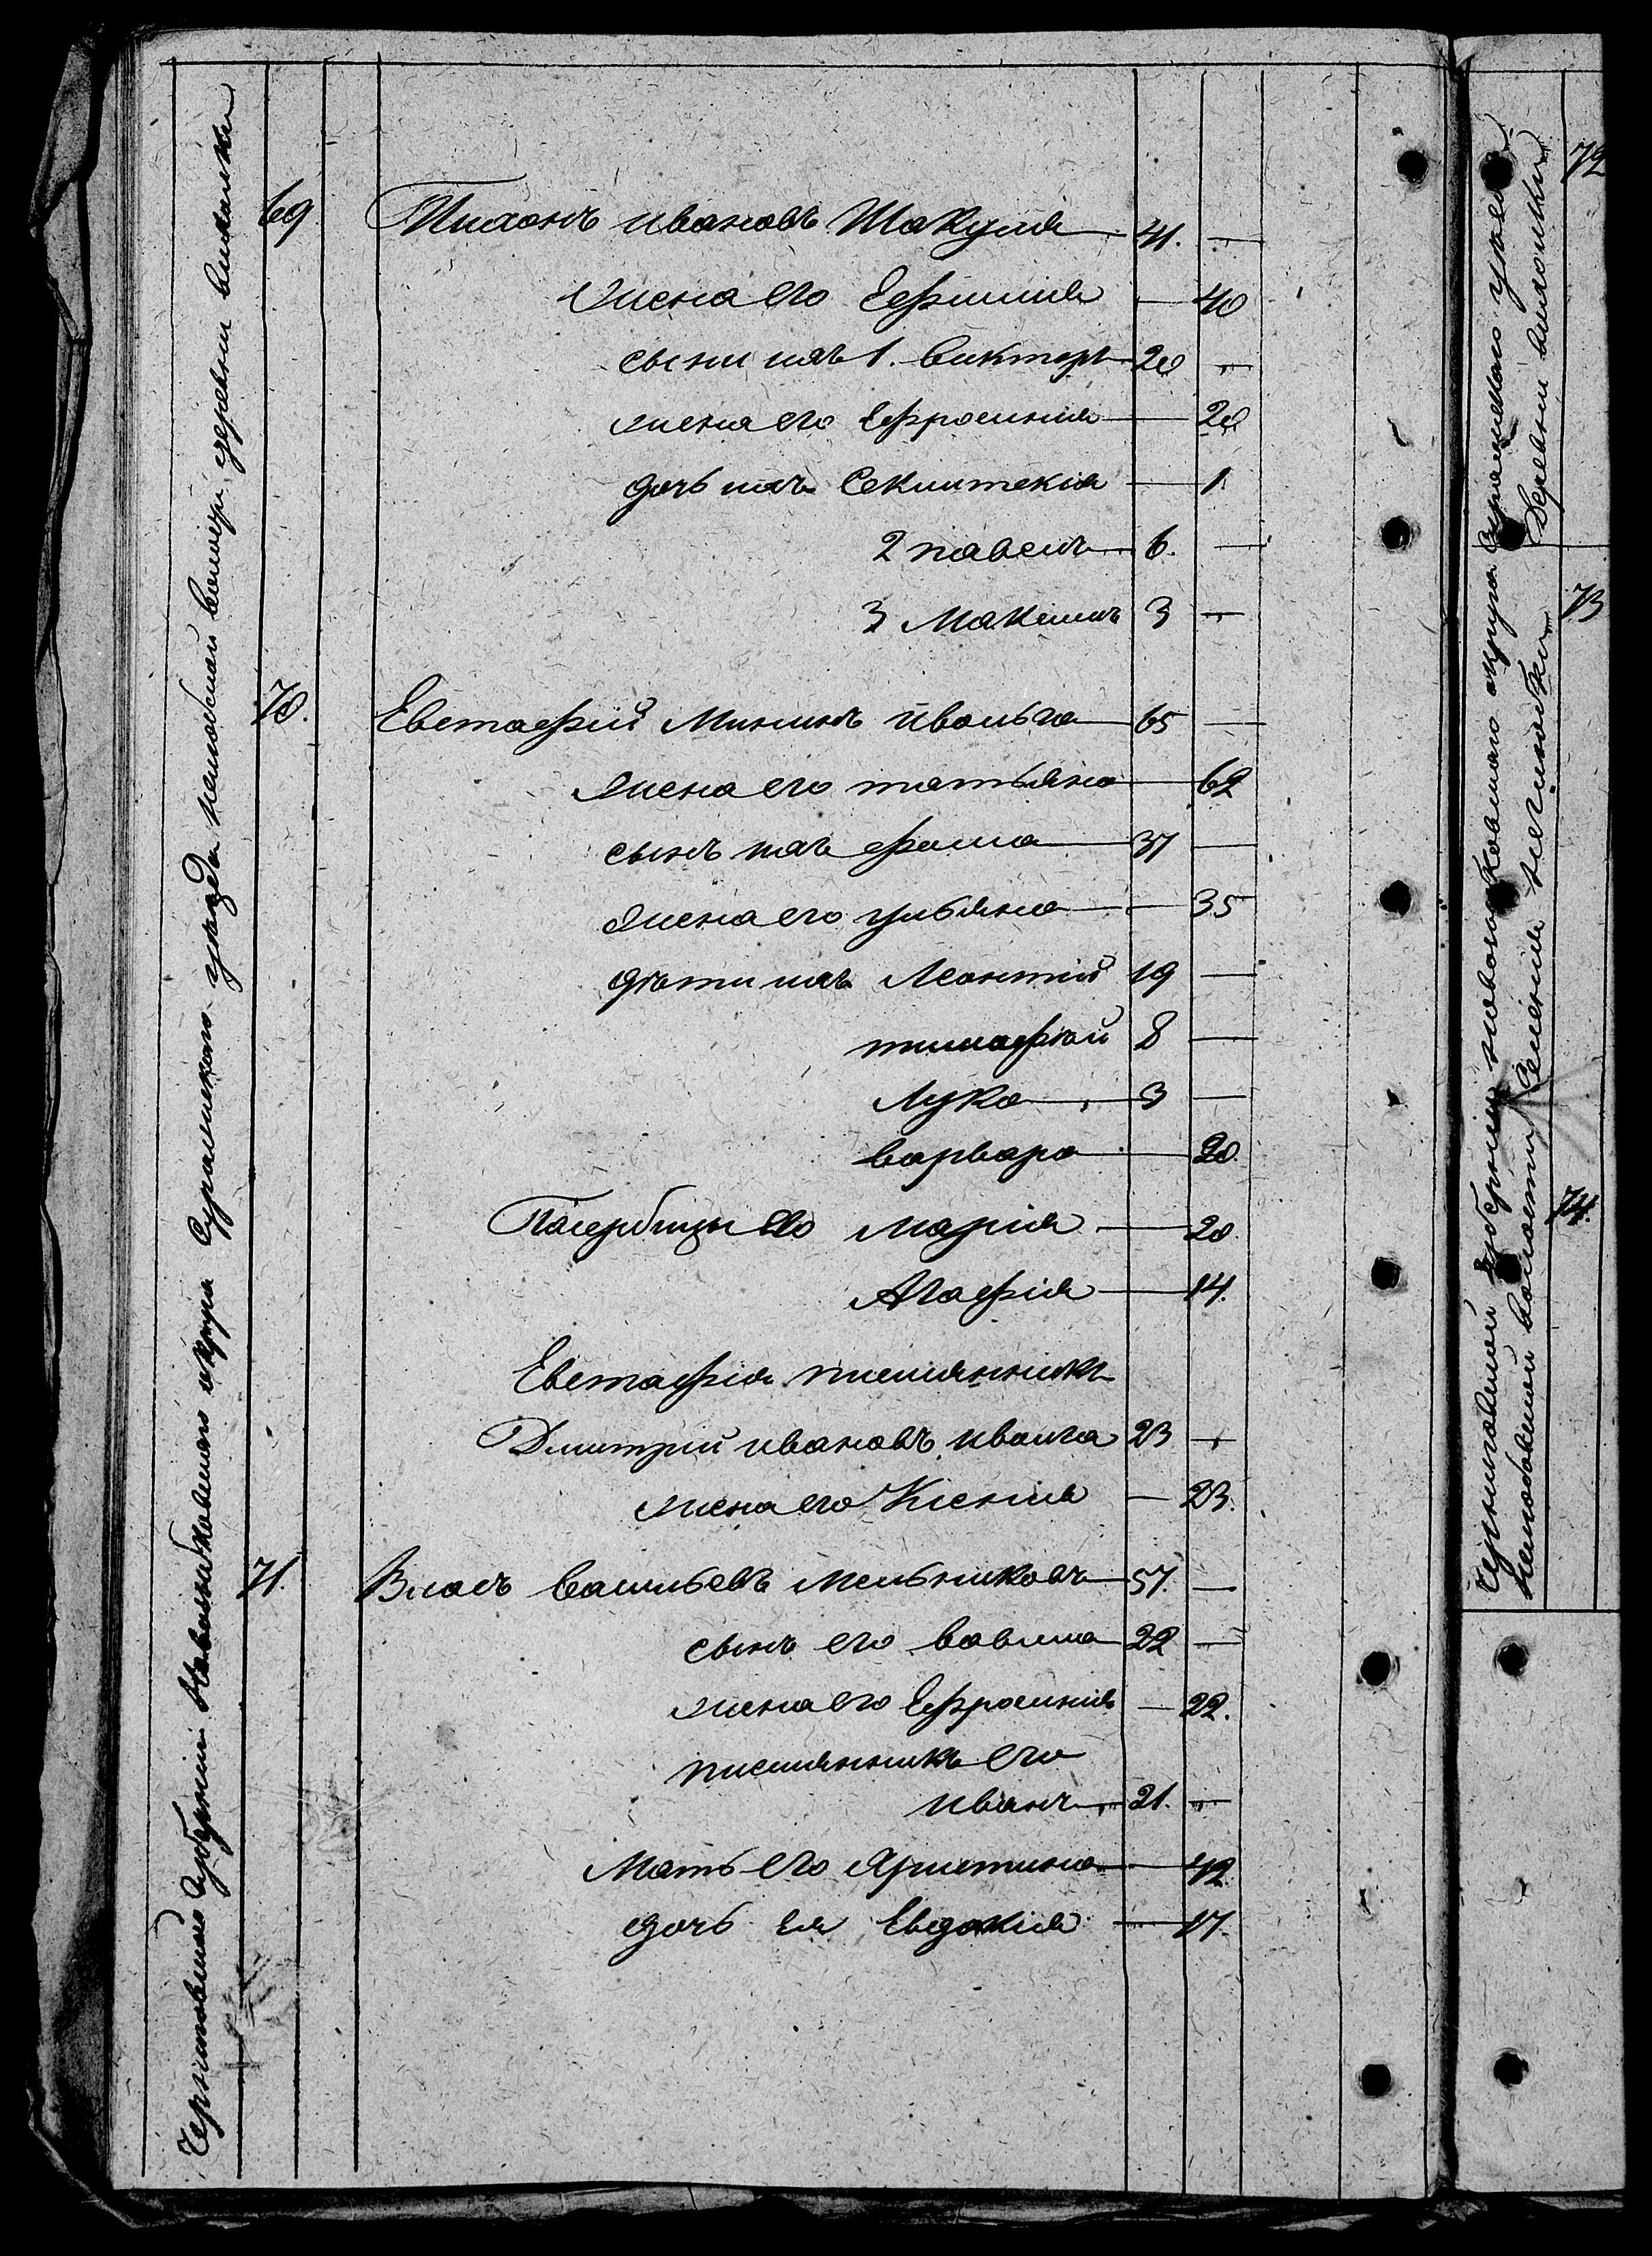 Черниговской губернии Новозыбковскаго округа Суражскаго уезда волости деревни
69 Тихонъ Ивановъ Шакуля 41. —
жена его Ефимия — 40
сыни ихъ 1. Викторъ 20 —
жена его Ефросиния — 20
дочь ихъ — 1.
2 павелъ 6. —
3 Максимъ 3 —
70. Евстафий Мининъ Ивольга 65 —
жена его татьяна — 62
сынъ ихъ фома 37 —
жена его ульяна — 35
дѣти ихъ Леонтий 19 —
тимофѣй 8 —
Лука 3 —
варвара — 20.
Пасербицы его мария — 20.
Агафия — 14.
Евстафия племянникъ
Дмитрий ивановъ иволга 23 —
жена его Ксения — 23.
71. Власъ васильевъ мельниковъ 57. —
сынъ его вавила 22 —
жена его Ефросиния — 22.
племянникъ его
иванъ 21. —
Мать его христина — 42
дочь ея Евдокия — 17.
Черниговской губернии новозыбковскаго округа Суражскаго уезда
волости Деревни
72
73
74.